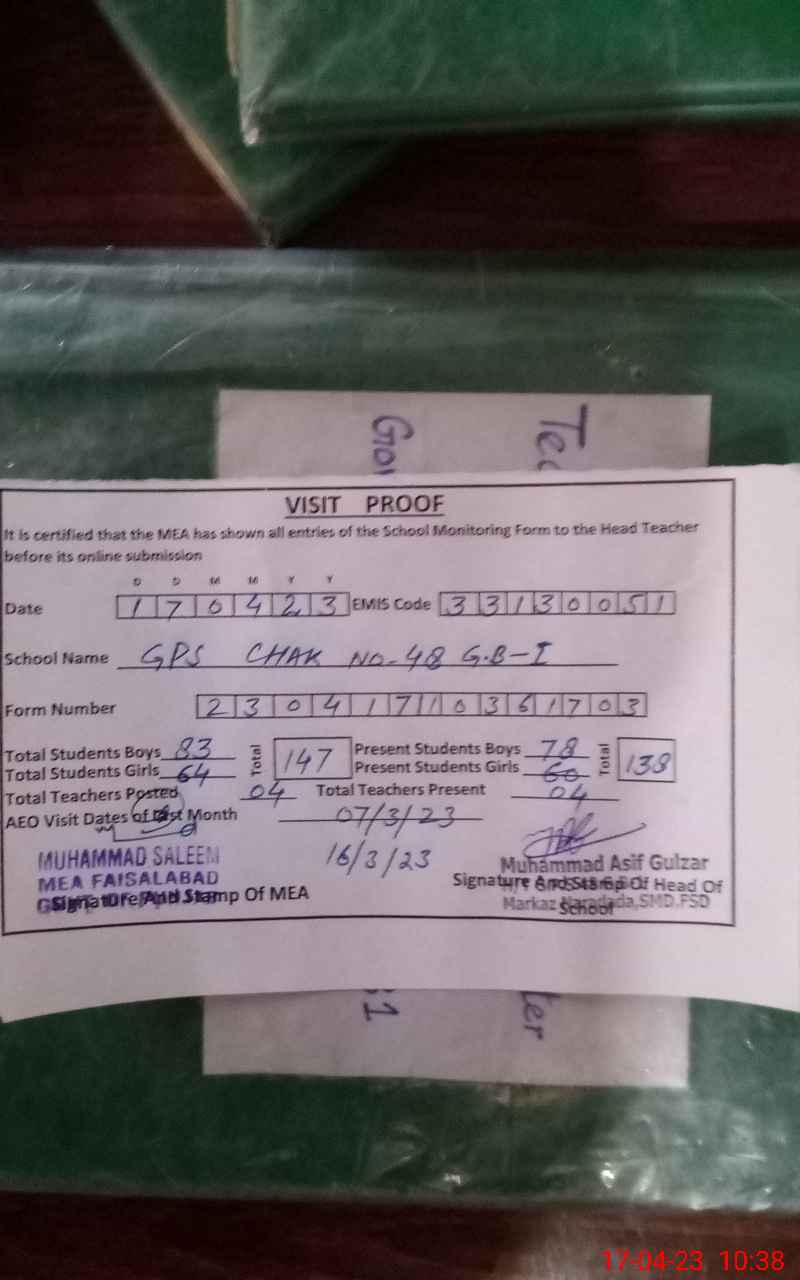 Tec
Gov
VISIT PROOF
It is certified that the MEA has shown all entries of the School Monitoring Form to the Head Teacher
before its online submission
D D M M Y Y
Date 170423 EMIS Code 33130051
School Name GPS CHAK NO-48 G.B-I
Form Number 2304171036 1703
Total Students Boys 83 Total 147 Present Students Boys 78 Total 138
Total Students Girls 64 Present Students Girls 60
Total Teachers Posted 04 Total Teachers Present 04
AEO Visit Dates of Last Month 07/3/23
16/3/23
MUHAMMAD SALEEM
MEA FAISALABAD
Signature And Stamp Of MEA
Muhammad Asif Gulzar
Signature And Stamp Of Head Of
School
Markaz Naradada,SMD.FSD
ter
1
17-04-23 10:38